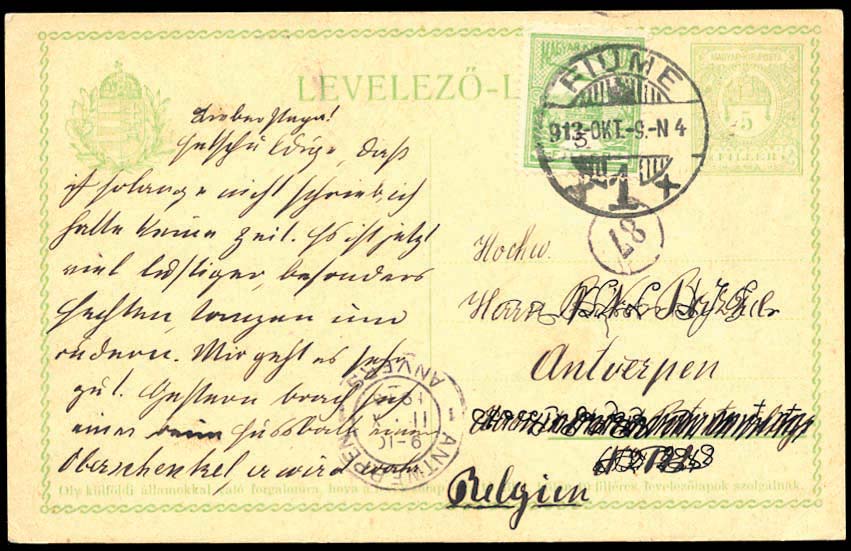 LEVELEZŐ-L
MAGYAR KIR. POSTA
5
FILLÉR
FIUME
913-OKT.-9.-N 4
87
Lieber Papa!
Entschuldige, daß
ich solange nicht schrieb, ich
hatte keine Zeit. Es ist jetzt
viel lustiger, besonders
fechten, tanzen und
rudern. Mir geht es sehr
gut. Gestern brach sich
einer beim Fussball einen
Oberschenkel er wird
Hochw.
Herrn
Antwerpen
Belgien
ANTWERPEN
ANVERS
Oly külföldi államokkal való forgalomra, hova a
filléres levelezőlapok szolgálnak.